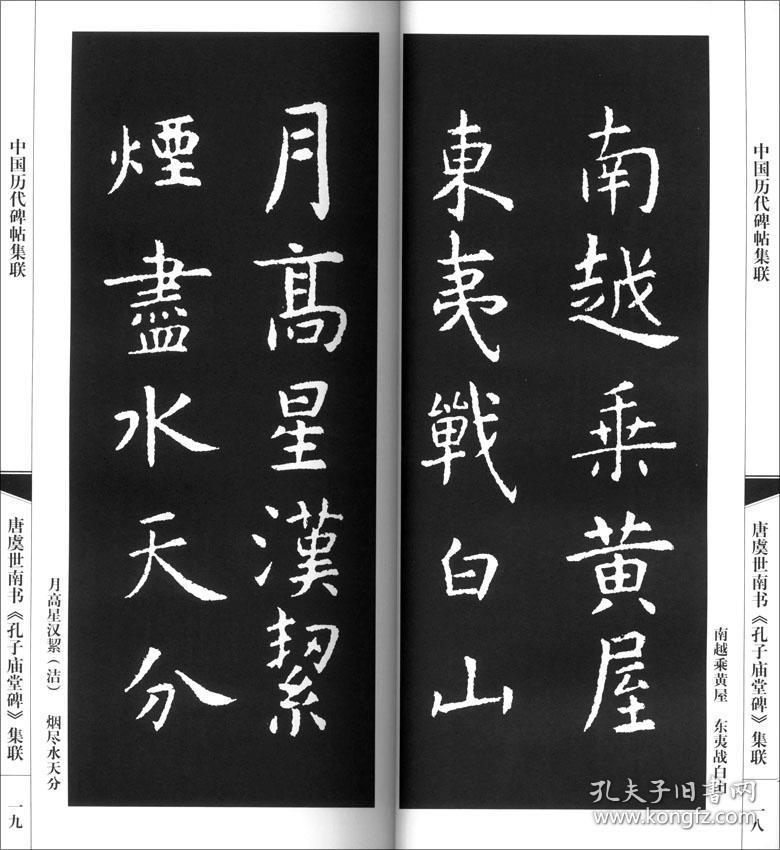 中国历代碑帖集联
唐虞世南书《孔子庙堂碑》集联
一八
南越乘黄屋　东夷战白山
南越乘黄屋
東夷戰白山
月高星漢絜
煙盡水天分
月高星汉絜（洁）　烟尽水天分
中国历代碑帖集联
唐虞世南书《孔子庙堂碑》集联
一九
孔夫子旧书网
www.kongfz.com